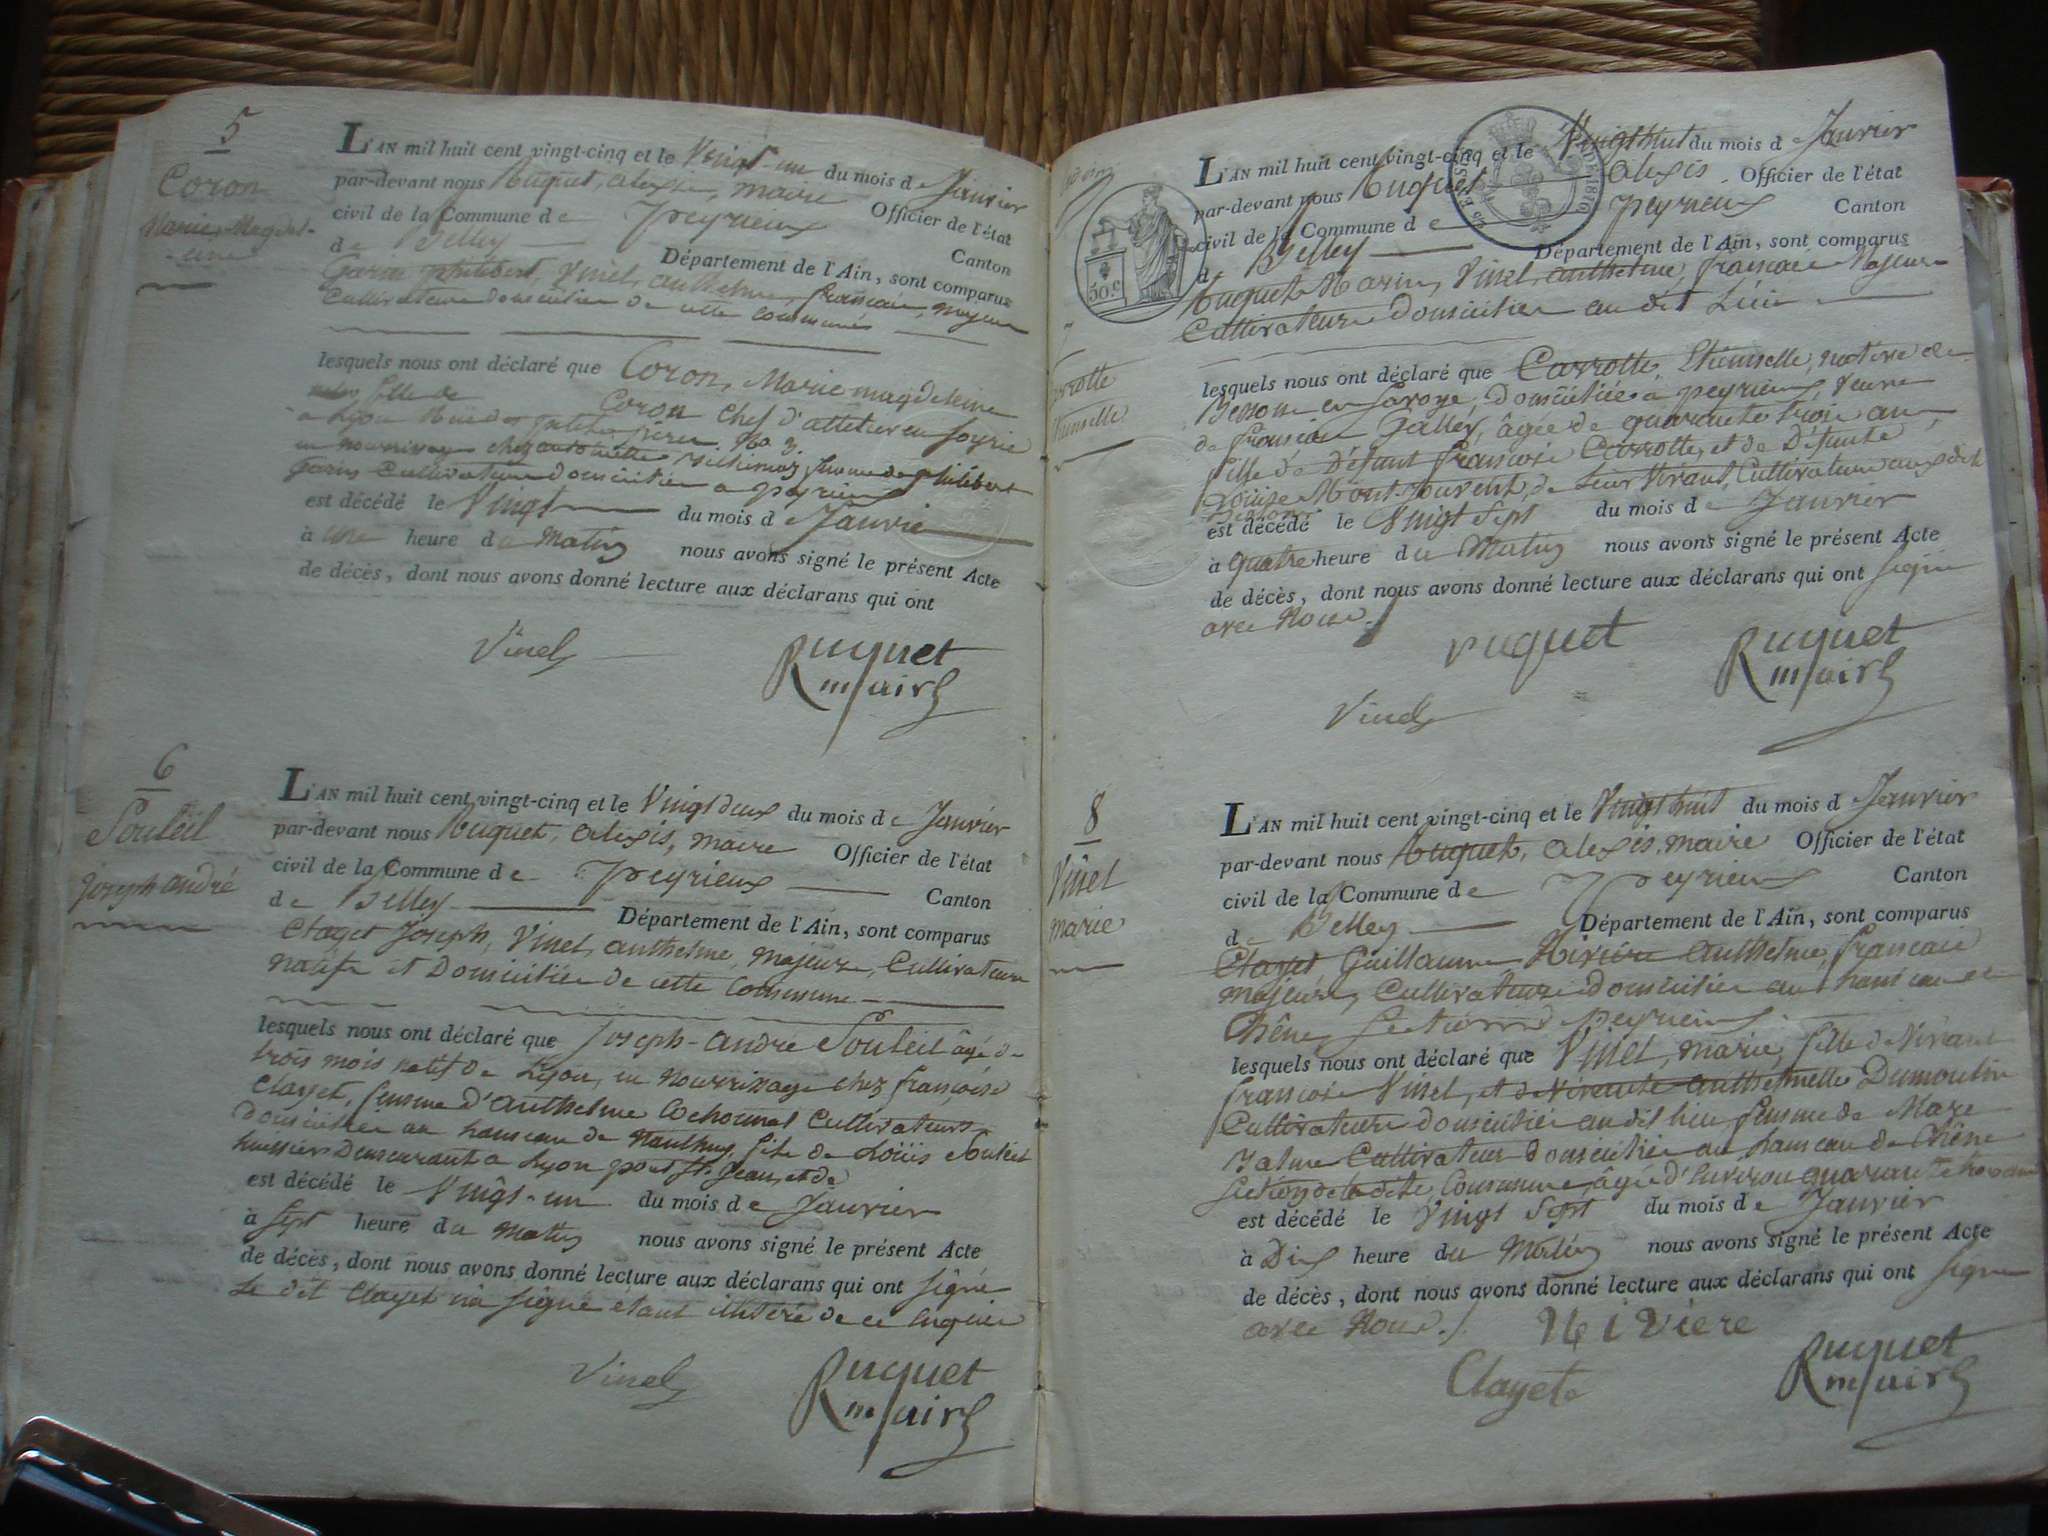 5
Coron
Marie-Magdel-
-eine
L'AN mil huit cent vingt-cinq et le Vingt un du mois de Janvier
par-devant nous Ruquet, alexis, maire Officier de l'état
civil de la Commune de Peyrieux Canton
de Belley Département de l'Ain, sont comparus
Garin philibert, Vinel, anthelme, francais, majeurs
Cultivateurs domicilies de cette commune
lesquels nous ont déclaré que Coron, Marie magdeleine
fille de Coron chef d'attelier en soyrie
a Lyon No. 3.
en nourrissage chez femme de philibert
Garin Cultivateur domicilié a peyrieux
est décédé le Vingt du mois de Janvie
à une heure du Matin nous avons signé le présent Acte
de décès, dont nous avons donné lecture aux déclarans qui ont
Vinel Ruquet
maire
6
Souleil
Joseph andré
L'AN mil huit cent vingt-cinq et le Vingt deux du mois de Janvier
par-devant nous Ruquet, alexis, maire Officier de l'état
civil de la Commune de Peyrieux Canton
de Belley Département de l'Ain, sont comparus
Clayet Joseph, Vinel, anthelme, majeurs, Cultivateurs
natifs et Domicilies de cette Commune
lesquels nous ont déclaré que Joseph-andré Souleil âgé de
trois mois natif de Lyon, en nourrissage chez françoise
Clayet, femme d'anthelme Cochonat Cultivateurs
domicilies au hameau de fils de Loüis Souleil
huissier Demeurant a Lyon port St. Jean, et de
est décédé le Vingt-un du mois de Janvier
à Sept heure du Matin nous avons signé le présent Acte
de décès, dont nous avons donné lecture aux déclarans qui ont signé
Le dit Clayet na signé étant illitéré de ce enquis
Vinel Ruquet
maire
50.c
1816
L'AN mil huit cent vingt-cinq et le Vingt huit du mois de Janvier
par-devant nous Ruquet alexis Officier de l'état
civil de la Commune de Peyrieux Canton
d Belley Département de l'Ain, sont comparus
Ruquet Marin, Vinel, anthelme, francais Majeurs
Cultivateurs Domicilies au dit Lieu
lesquels nous ont déclaré que Carrotte, native de
en Savoye, Domiciliée a peyrieux, Veuve
de françois âgée de quarante trois ans
fille de Défunt françois Carrotte, et de Défunte
Louise Mont-Jouvent, de leur vivant Cultivateurs
est décédé le Vingt Sept du mois de Janvier
à quatre heure du Matin nous avons signé le présent Acte
de décès, dont nous avons donné lecture aux déclarans qui ont signé
avec Nous.
ruquet Ruquet
maire
Vinel
8
Vinel
marie
L'AN mil huit cent vingt-cinq et le Vingt huit du mois d Janvier
par-devant nous Ruquet, alexis, maire Officier de l'état
civil de la Commune de Peyrieux Canton
de Belley Département de l'Ain, sont comparus
Clayet, Guillaume Riviere anthelme, francais
majeurs, Cultivateurs domicilies au hameau de
Chêne, Section de peyrieux
lesquels nous ont déclaré que Vinel, marie, fille de Vivant
françois Vinel, et de Vivante anthelmette Dumoulin
Cultivateurs domicilies au dit lieu femme de Marc
Cultivateur domicilié au hameau de Chêne
Section de la dite Commune, âgée d'environ quarante
est décédé le Vingt Sept du mois de Janvier
à Dix heure du Matin nous avons signé le présent Acte
de décès, dont nous avons donné lecture aux déclarans qui ont signé
avec Nous.
Riviere
Clayet Ruquet
maire